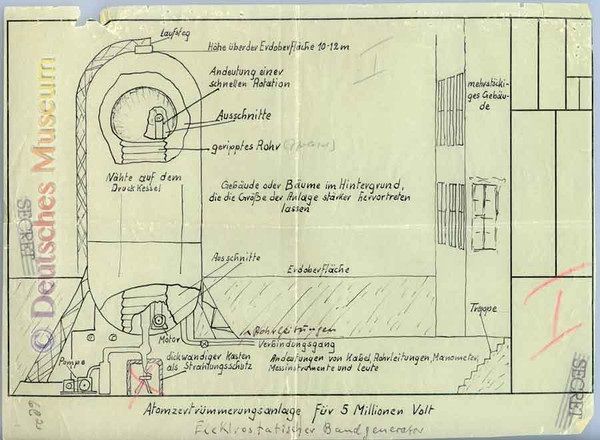 Laufsteg
Höhe über der Erdoberfläche 10-12 m
I
Andeutung einer
schnellen Rotation
mehrstöcki-
ges Gebäu-
de
Ausschnitte
geripptes Rohr
Nähte auf dem
Druckkessel
Gebäude oder Bäume im Hintergrund,
die die Größe der Anlage stärker hervortreten
lassen
© Deutsches Museum
SECRET
Ausschnitte
Erdoberfläche
Treppe
Rohrleitungen
Motor
Verbindungsgang
Pumpe
dickwandiger Kasten
als Strahlungsschutz
Andeutungen von Kabel, Rohrleitungen, Manometer,
Messinstrumente und Leute
SECRET
SECRET
Atomzertrümmerungsanlage für 5 Millionen Volt
Elektrostatischer Bandgenerator